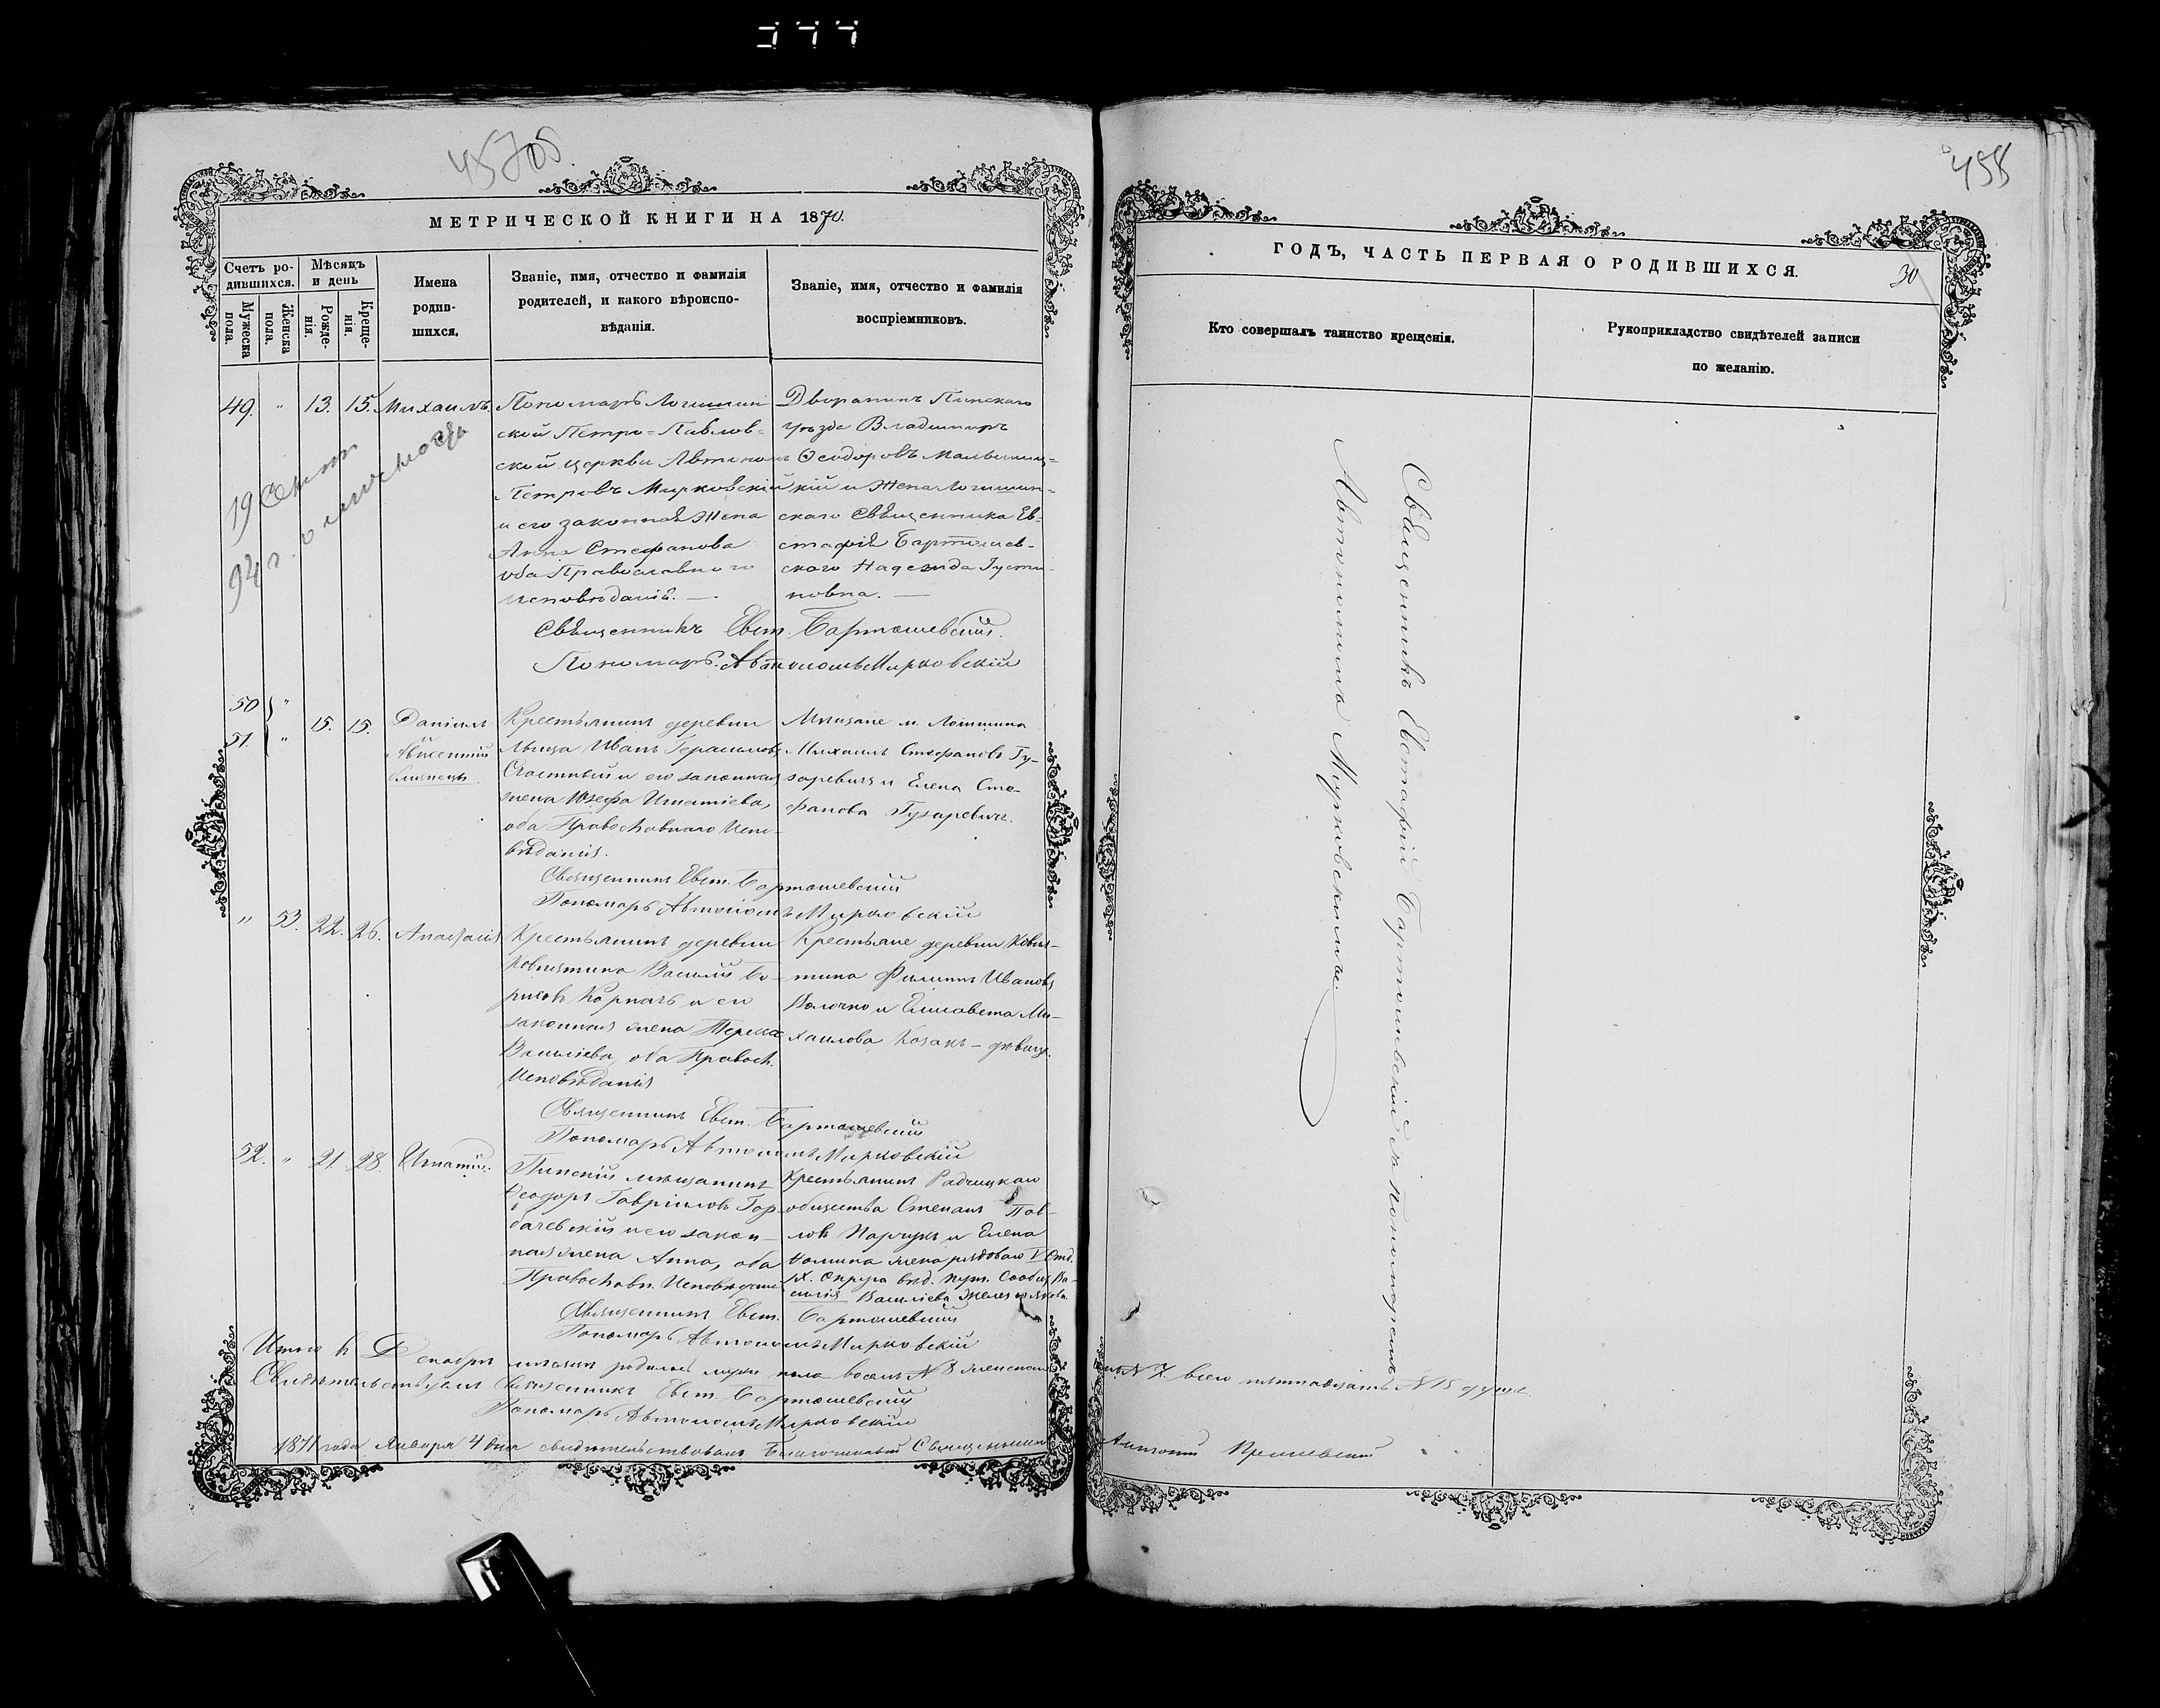 377
45705
МЕТРИЧЕСКОЙ КНИГИ НА 1870.
Счетъ ро-
дившихся.
Мужеска
пола.
Женска
пола.
Мѣсяцъ
и день
Рожде-
нія.
Креще-
нія.
Имена
родив-
шихся.
Званіе, имя, отчество и фамилія
родителей, и какого вѣроиспо-
вѣданія.
Званіе, имя, отчество и фамилія
воспріемниковъ.
49. " 13. 15. Михаилъ.
19 Сент
94 г.
Пономарь Логишин
ской Петро=Павлов=
ской церкви Автоном
Петровъ Мирковскій
и его законная Жена
Анна Стефанова
оба Православнаго
исповѣданія. —
Дворянинъ Пинскаго
уѣзда Владимиръ
Ѳеодоровъ
кій и Жена Логишин-
скаго Священника Ев-
стафія Бартошев-
скаго Надежда Густи-
новна. —
Священникъ Евст. Бартошевскій.
Пономарь Автономъ Мирковскій
50 "
51. "
15. 15.
Даніилъ
Авксентій
близнецы
Крестьянинъ деревни
Иванъ Герасимовъ
Счастный и его законная
жена Юзефа Игнатіева,
оба Православнаго Испо-
вѣданія.
Мѣщане м. Логишина
Михаилъ Стефановъ Гу-
заревичъ и Елена Сте-
фанова Гузаревичъ.
Священникъ Евст. Бартошевскій
Пономарь Автономъ Мирковскій
" 53. 22. 26. Анастасія
Крестьянинъ деревни
Ковнятина Василій Бо-
рисовъ Корначъ и его
законная жена
Васильева, оба Правосл.
Исповѣданія
Крестьяне деревни Ковня-
тина Филиппъ Ивановъ
Волочко и Елисавета Ми-
хаилова Козакъ - дѣвица.
Священникъ Евст. Бартошевскій
Пономарь Автономъ Мирковскій
52. " 21. 28. Игнатій.
Пинскій мѣщанинъ
Ѳеодоръ Гавріиловъ Гор
бачевскій и его закон-
ная жена Анна, оба
Православн. Исповѣданія
Крестьянинъ Радчицкаго
общества Степанъ Пав-
ловъ и Елена
жена рядоваго V Отд.
X. Округа вѣд. пут. Сообщ. Ва-
силія Васильева
Священникъ Евст. Бартошевскій
Пономарь Автономъ Мирковскій
Итого въ Декабрѣ мѣсяцѣ родилось мужес. пола восемь № 8 женскаго
Свидѣтельствуемъ Священникъ Евст. Бартошевскій
Пономарь Автономъ Мирковскій
1871 года Января 4 дня свидѣтельствовалъ Благочинный Священникъ
458
ГОДЪ, ЧАСТЬ ПЕРВАЯ О РОДИВШИХСЯ.
30
Кто совершалъ таинство крещенія.
Рукоприкладство свидѣтелей записи
по желанію.
Священникъ Евстафій Бартошевскій съ Пономаремъ
Автономомъ Мирковскимъ.
№ 7. всего пятнадцать № 15 душъ.
Антоній